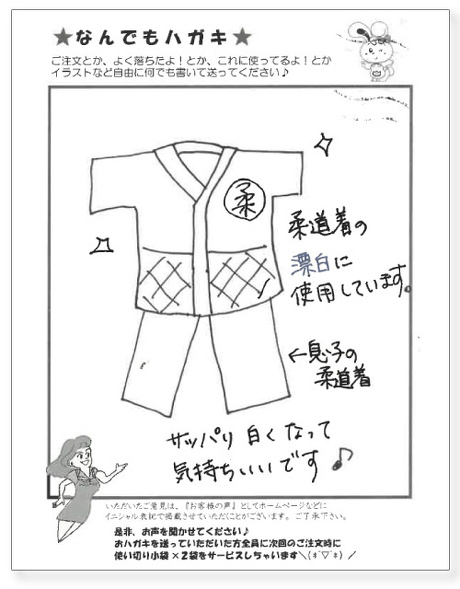 ★なんでもハガキ★
ご注文とか、よく落ちたよ！とか、これに使ってるよ！とか
イラストなど自由に何でも書いて送ってください♪
柔
柔道着の
漂白に
使用しています。
←息子の
柔道着
サッパリ 白くなって
気持ちいいです♪
いただいたご意見は、『お客様の声』としてホームページなどに
イニシャル表記で掲載させていただくことがございます。ご了承下さい。
是非、お声を聞かせてください♪
おハガキを送っていただいた方全員に次回のご注文時に
使い切り小袋×2袋をサービスしちゃいます＼(*ﾟ▽ﾟ*)／